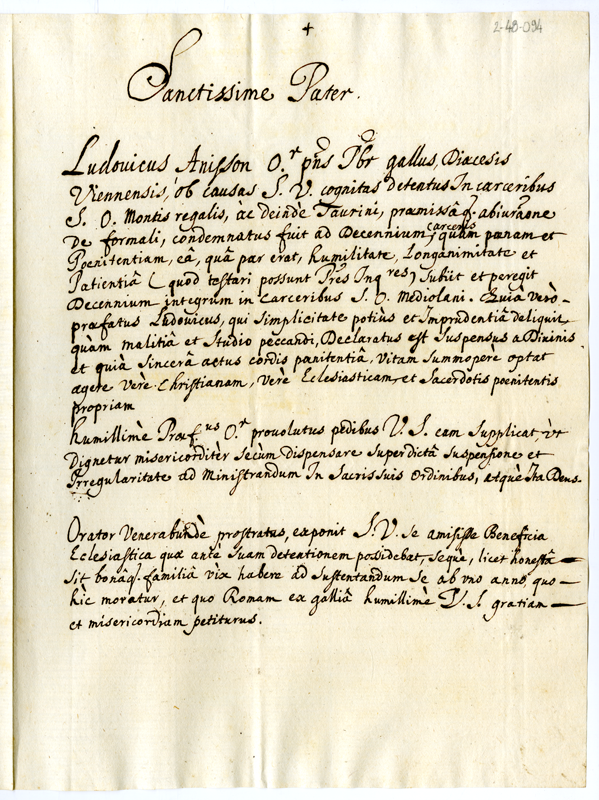 2-48-094
+
Sanctissime Pater.
Ludovicus Anisson O.r pñs Pbr gallus, Diæcesis
Viennensis, ob causas S. V. cognitas detentus In carceribus
S. O. Montis regalis, àc deindè Taurini, præmissâq. abiuraõne
De formali, condemnatus fuit ad Decennium, carceris quam pænam et
Pœnitentiam, eâ, quâ par erat, humilitate, Longanimitate et
Patientiâ (quod testari possunt Pres Inq.res) Subiit et peregit
Decennium integrum in Carceribus S. O. Mediolani. Quià verò-
præfatus Ludovicus, qui Simplicitate potiùs et Imprudentiâ deliquit
quàm malitiâ et Studio peccandi, Declaratus est Suspensus a Divinis
et quià Sincerâ actus cordis pænitentiâ, vitam Summoperè optat
agere verè Christianam, verè Ecclesiasticam, et Sacerdotis pœnitentis
propriam
humillimè Præf.us O.r provolutus pedibus V. S. eam Supplicat, ùt
Dignetur misericorditèr Secum dispensare Superdictâ Suspensione et
Irregularitate ad Ministrandum In Sacris Suis Ordinibus, atquè Ita Deus.
Orator Venerabundè prostratus, exponit S. V. Se amisisse Beneficia
Ecclesiastica quæ antè Suam detentionem possidebat, Sequè, licet honestâ
Sit bonâq. familiâ vix habere ad Sustentandum Se ab vno anno, quo
hìc moratur, et quo Romam ex galliâ humillimè V. S. gratiam
et misericordiam petiturus.